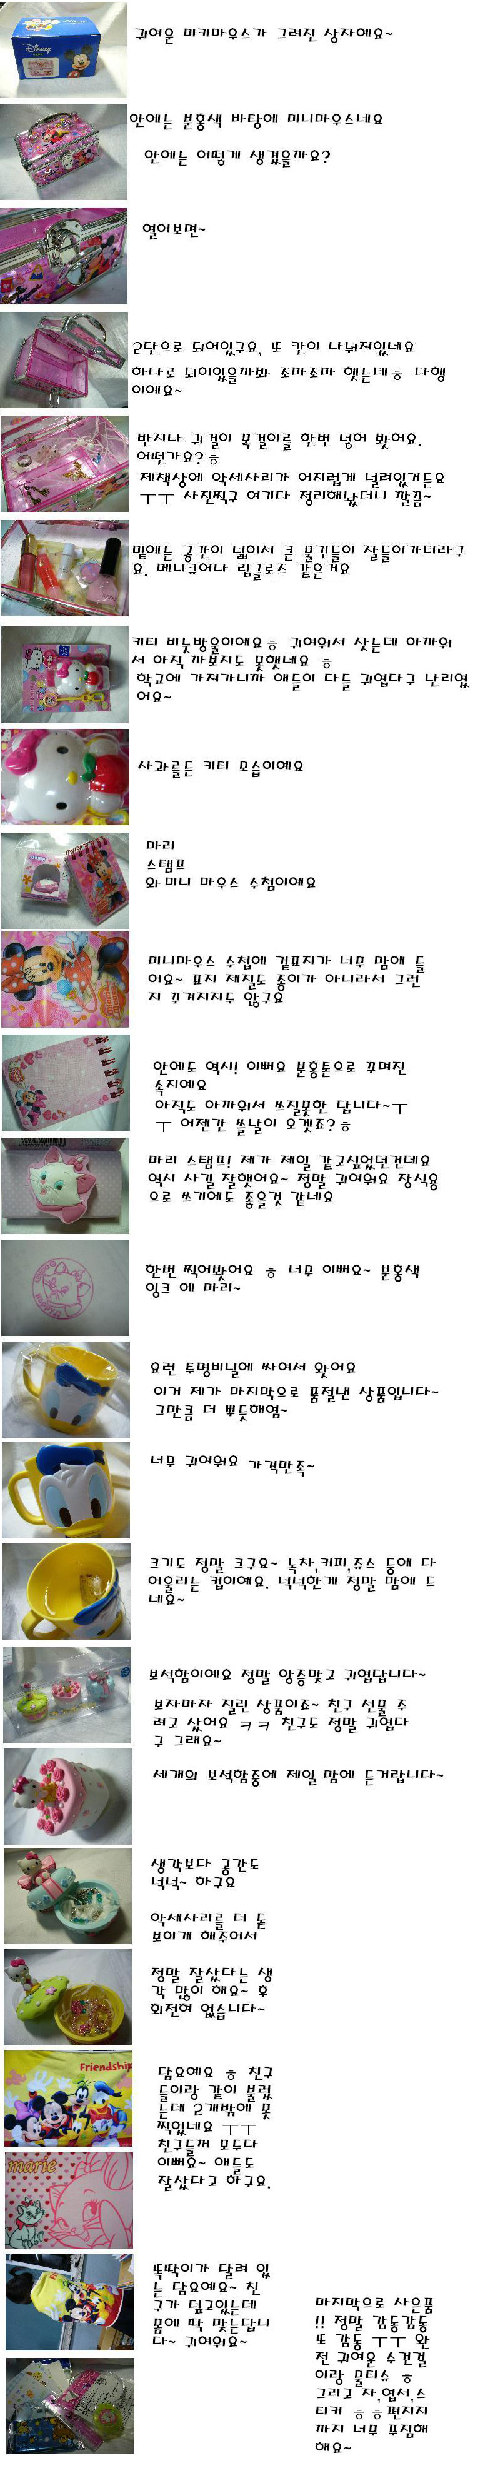 Disney
귀여운 미키마우스가 그려진 상자에요~
안에는 분홍색 바탕에 미니마우스네요
안에는 어떻게 생겼을까요?
열어보면~
2단으로 되어있구요, 또 칸이 나눠져있네요
하나로 되어있을까봐 조마조마 했는데ㅎ 다행
이에요~
반지나 귀걸이 목걸이를 한번 넣어 봤어요.
어떤가요? ㅎ
제책상에 악세사리가 어지럽게 널려있거든요
ㅜㅜ 사진찍구 여기다 정리해놨더니 깔끔~
밑에는 공간이 넓어서 큰 물건들이 잘들어가더라구
요. 메니큐어나 립글로스 같은거요
키티 비눗방울이에요ㅎ 귀여워서 샀는데 아까워
서 아직 까보지도 못했네요 ㅎ
학교에 가져가니까 애들이 다들 귀엽다구 난리였
어요~
사과를든 키티 모습이에요
마리
스탬프
와 미니 마우스 수첩이에요
미니마우스 수첩에 겉표지가 너무 맘에 들
어요~ 표지 재질도 종이가 아니라서 그런
지 꾸겨지지두 않구요
안에도 역시! 이뻐요 분홍톤으로 꾸며진
속지에요
아직도 아까워서 쓰질못한 답니다~ㅜ
ㅜ 어젠간 쓸날이 오겟죠? ㅎ
마리 스탬프! 제가 제일 갖고싶었던건데요
역시 사길 잘했어요~ 정말 귀여워요 장식용
으로 쓰기에도 좋을것 같네요
한번 찍어봤어요 ㅎ 너무 이뻐요~ 분홍색
잉크 에 마리~
요런 투명비닐에 싸여서 왔어요
이거 제가 마지막으로 품절낸 상품입니다~
그만큼 더 뿌듯해염~
너무 귀여워요 가격만족~
크기도 정말 크구요~ 녹차,커피,쥬스 등에 다
어울리는 컵이에요. 넉넉한게 정말 맘에 드
네요~
보석함이에요 정말 앙증맞고 귀엽답니다~
보자마자 질린 상품이죠~ 친구 선물 주
려고 샀어요 ㅋㅋ 친구도 정말 귀엽다
구 그래요~
세개의 보석함중에 제일 맘에 든거랍니다~
생각보다 공간도
넉넉~ 하구요
악세사리를 더 돋
보이게 해주어서
정말 잘샀다는 생
각 많이 해요~ 후
회전혀 없습니다~
Friendship
담요에요 ㅎ 친구
들이랑 같이 질렀
는데 2개밖에 못
찍었네요 ㅜㅜ
친구들꺼 모두다
이뻐요~ 애들도
잘샀다고 하구요.
marie
똑딱이가 달려 있
는 담요에요~ 친
구가 덮고있는데
품에 딱 맞는답니
다~ 귀여워요~
마지막으로 사은품
!! 정말 감동감동
또 감동 ㅜㅜ 완
전 귀여운 수건걸
이랑 물티슈 ㅎ
그리고 자,엽서,스
티커 ㅎㅎ편지지
까지 너무 푸짐해
해요~